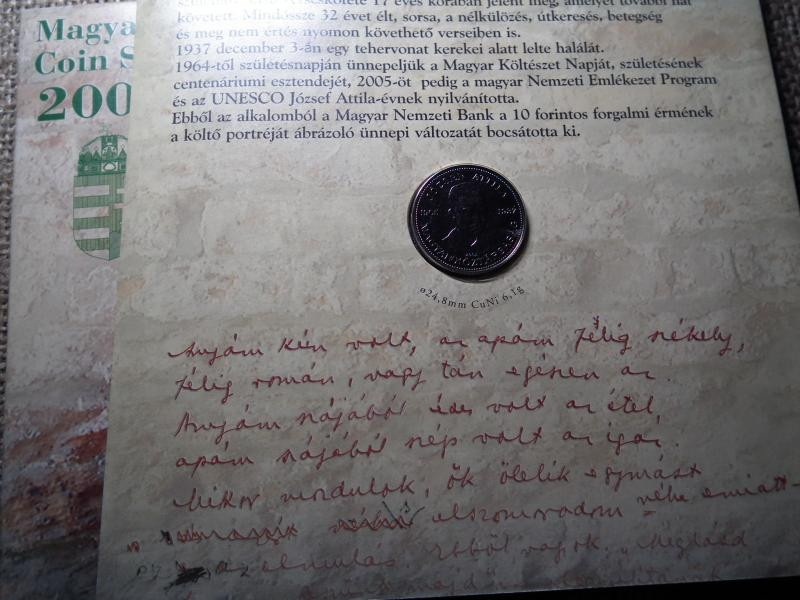 Magya
Coin S
200
17 éves korában jelent meg, amelyet további hat
követett. Mindössze 32 évet élt, sorsa, a nélkülözés, útkeresés, betegség
és meg nem értés nyomon követhető verseiben is.
1937 december 3-án egy tehervonat kerekei alatt lelte halálát.
1964-től születésnapján ünnepeljük a Magyar Költészet Napját, születésének
centenáriumi esztendejét, 2005-öt pedig a magyar Nemzeti Emlékezet Program
és az UNESCO József Attila-évnek nyilvánította.
Ebből az alkalomból a Magyar Nemzeti Bank a 10 forintos forgalmi érmének
a költő portréját ábrázoló ünnepi változatát bocsátotta ki.
JÓZSEF ATTILA
1905 1937
MAGYAR KÖZTÁRSASÁG
ø24,8mm CuNi 6,1g
Anyám kún volt, az apám félig székely,
félig román, vagy tán egészen az.
Anyám szájából édes volt az étel,
apám szájából szép volt az igaz.
Mikor mozdulok, ők ölelik egymást
elszomorodom néha emiatt
az elmulás. Ebből vagyok. „Meglásd